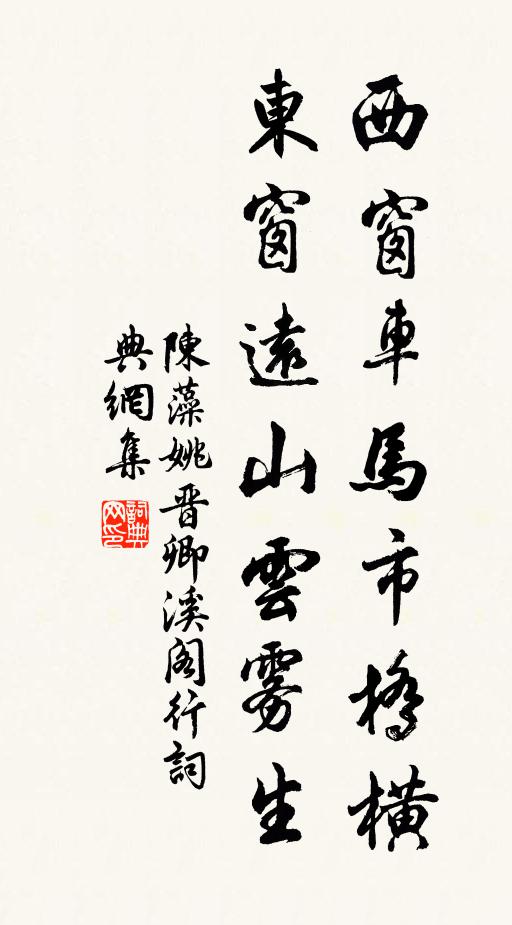 西窗車馬市橋橫
東窗遠山雲霧生
陳藻姚晋卿溪阁行詞
典網集
詞典
网印